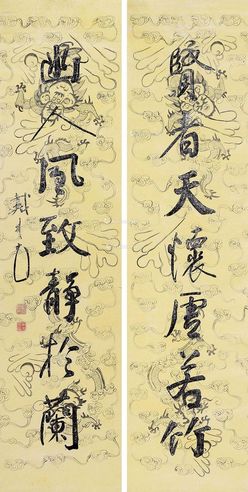 賢者天懷虛若竹
幽人風致靜於蘭